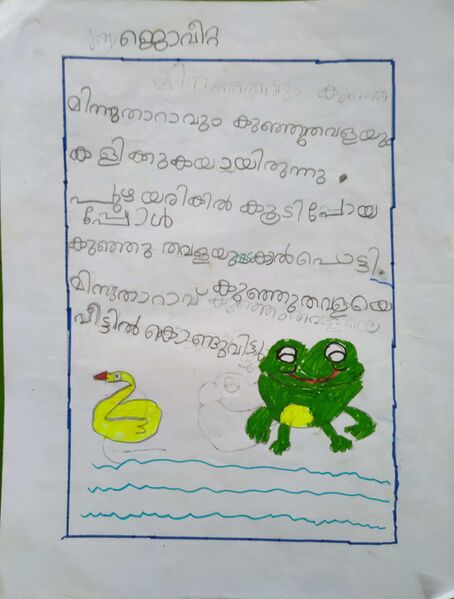 ജൊവീറ്റ
മിന്നുതാറാവും കുഞ്ഞുതവളയും
കളിക്കുകയായിരുന്നു.
പുഴയരികിൽ കൂടിപ്പോയ
പ്പോൾ
കുഞ്ഞു തവളയുടെകാൽപൊട്ടി.
മിന്നുതാറാവ് കുഞ്ഞുതവളയെ
വീട്ടിൽ കൊണ്ടുവിട്ടു